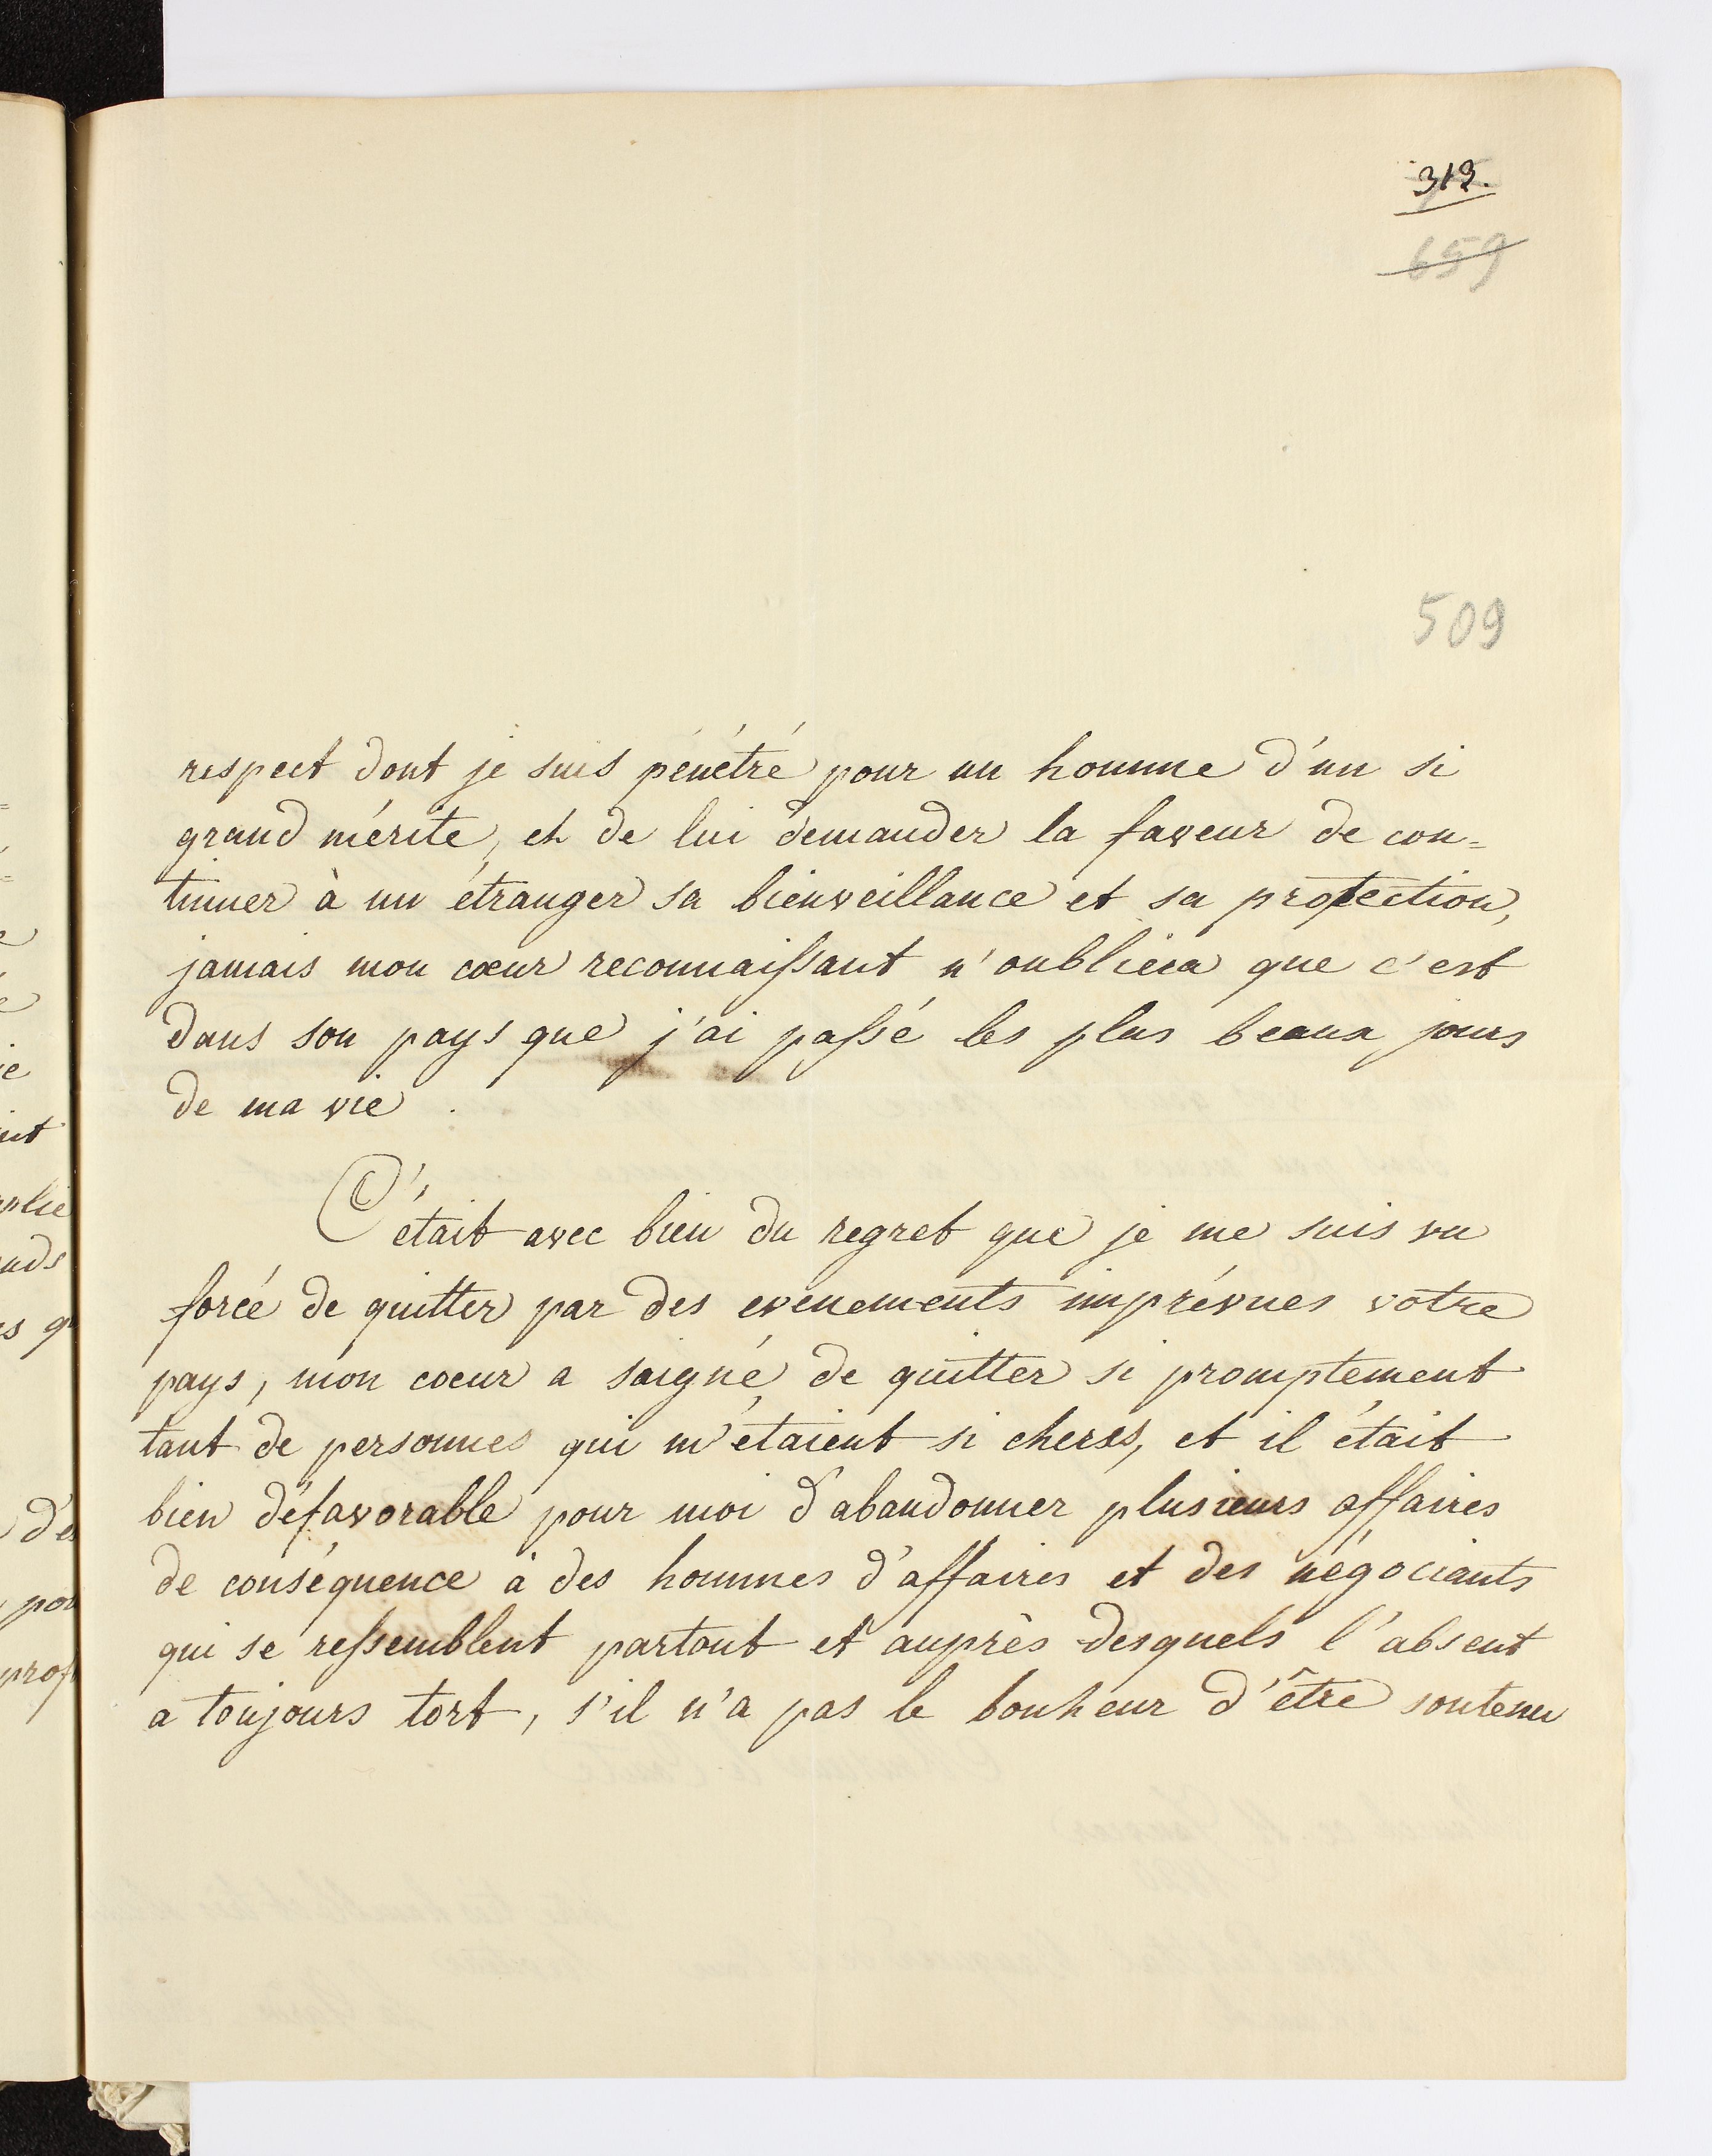 313.
659
509
respect dont je suis pénétré pour un homme d'un si
grand mérite, et de lui demander la faveur de con=
tinuer à un étranger sa bienveillance et sa protection,
jamais mon cœur reconnaissant n'oubliera que c'est
dans son pays que j'ai passé les plus beaux jours
de ma vie.
C'était avec bien du regret que je me suis vu
forcé de quitter par des evenements imprévues votre
pays, mon coeur a saigné de quitter si promptement
tant de personnes qui m'étaient si cheres, et il était
bien défavorable pour moi d'abandonner plusieurs affaires
de conséquence à des hommes d'affaires et des négociants
qui se ressemblent partout et auprès desquels l'absent
a toujours tort, s'il n'a pas le bonheur d'être soutenu